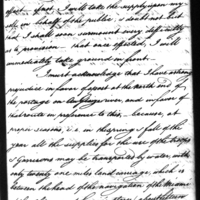 effort. I will take the supply upon my
on behalf of the public, & doubt not but
I shall soon surmount every difficulty
to a provision — that once effected, I will
immediately take ground in front.
I must acknowledge that I have a strong
prejudice in favor of a post at the north end of
the portage on river, and in favor of
that route in preference to this — because, at
proper seasons, i.e. in the spring & fall of the
year all the supplies for the use of the troops
& Garrisons may be transported by water, with
only twenty one miles land carriage, which is
between the head of the navigation of the Miami